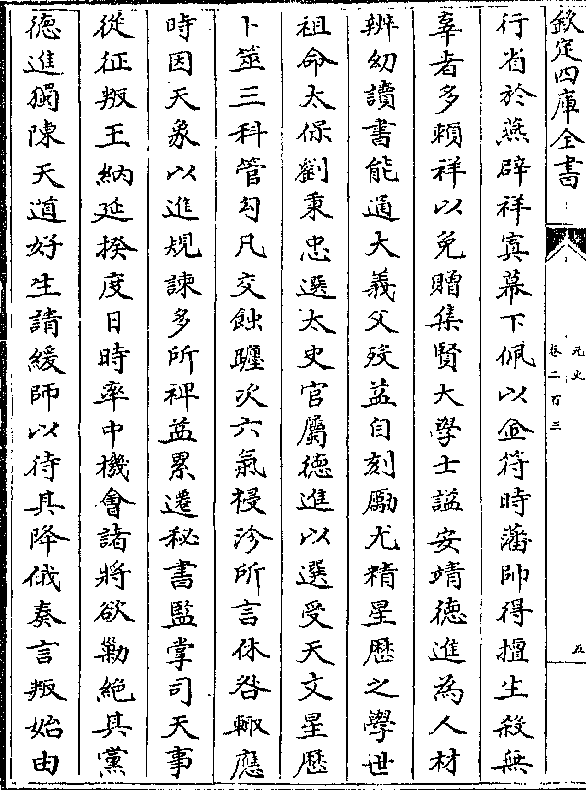 欽定四庫全書
元史
卷二百三
五
行省於燕辟祥寘幕下佩以金符時藩帥得擅生殺無
辜者多賴祥以免贈集賢大學士諡安靖德進為人材
辨幼讀書能通大義父歿益自刻勵尤精星歴之學世
祖命太保劉秉忠選太史官屬德進以選受天文星歴
卜筮三科管勾凡交蝕躔次六氣祲沴所言休咎輒應
時因天象以進規諫多所裨益累遷秘書監掌司天事
從征叛王納延揆度日時率中機會諸將欲勦絶其黨
德進獨陳天道好生請緩師以待其降俄奏言叛始由